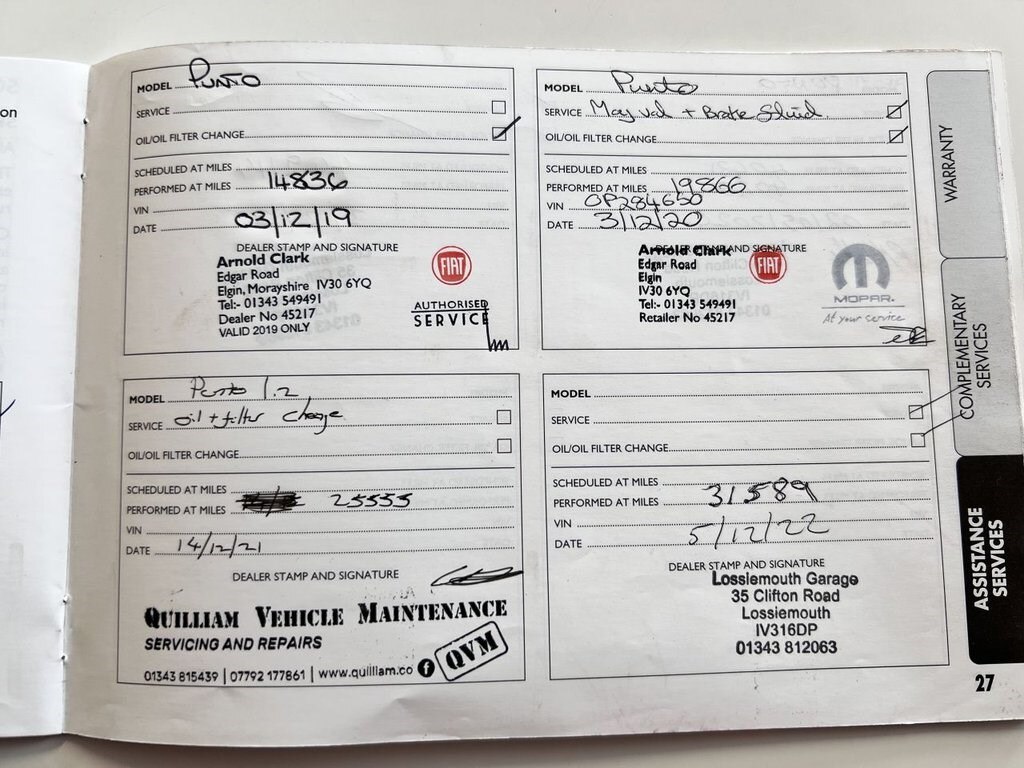 on
MODEL Punto
SERVICE
OIL/OIL FILTER CHANGE
SCHEDULED AT MILES
PERFORMED AT MILES 14836
VIN
DATE 03/12/19
DEALER STAMP AND SIGNATURE
Arnold Clark
Edgar Road
Elgin, Morayshire IV30 6YQ
Tel:- 01343 549491
Dealer No 45217
VALID 2019 ONLY
FIAT
AUTHORISED
SERVICE
MODEL Punto
SERVICE Maj val + Brake fluid.
OIL/OIL FILTER CHANGE
SCHEDULED AT MILES
PERFORMED AT MILES 19866
VIN OP284650
DATE 3/12/20
DEALER STAMP AND SIGNATURE
Arnold Clark
Edgar Road
Elgin
IV30 6YQ
Tel:- 01343 549491
Retailer No 45217
FIAT
MOPAR.
At your service
MODEL Punto 1.2
SERVICE oil + filter change
OIL/OIL FILTER CHANGE
SCHEDULED AT MILES
PERFORMED AT MILES 25555
VIN
DATE 14/12/21
DEALER STAMP AND SIGNATURE
QUILLIAM VEHICLE MAINTENANCE
SERVICING AND REPAIRS
01343 815439 | 07792 177861 | www.quilliam.co f
QVM
MODEL
SERVICE
OIL/OIL FILTER CHANGE
SCHEDULED AT MILES
PERFORMED AT MILES 31589
VIN
DATE 5/12/22
DEALER STAMP AND SIGNATURE
Lossiemouth Garage
35 Clifton Road
Lossiemouth
IV316DP
01343 812063
WARRANTY
COMPLEMENTARY
SERVICES
ASSISTANCE
SERVICES
27